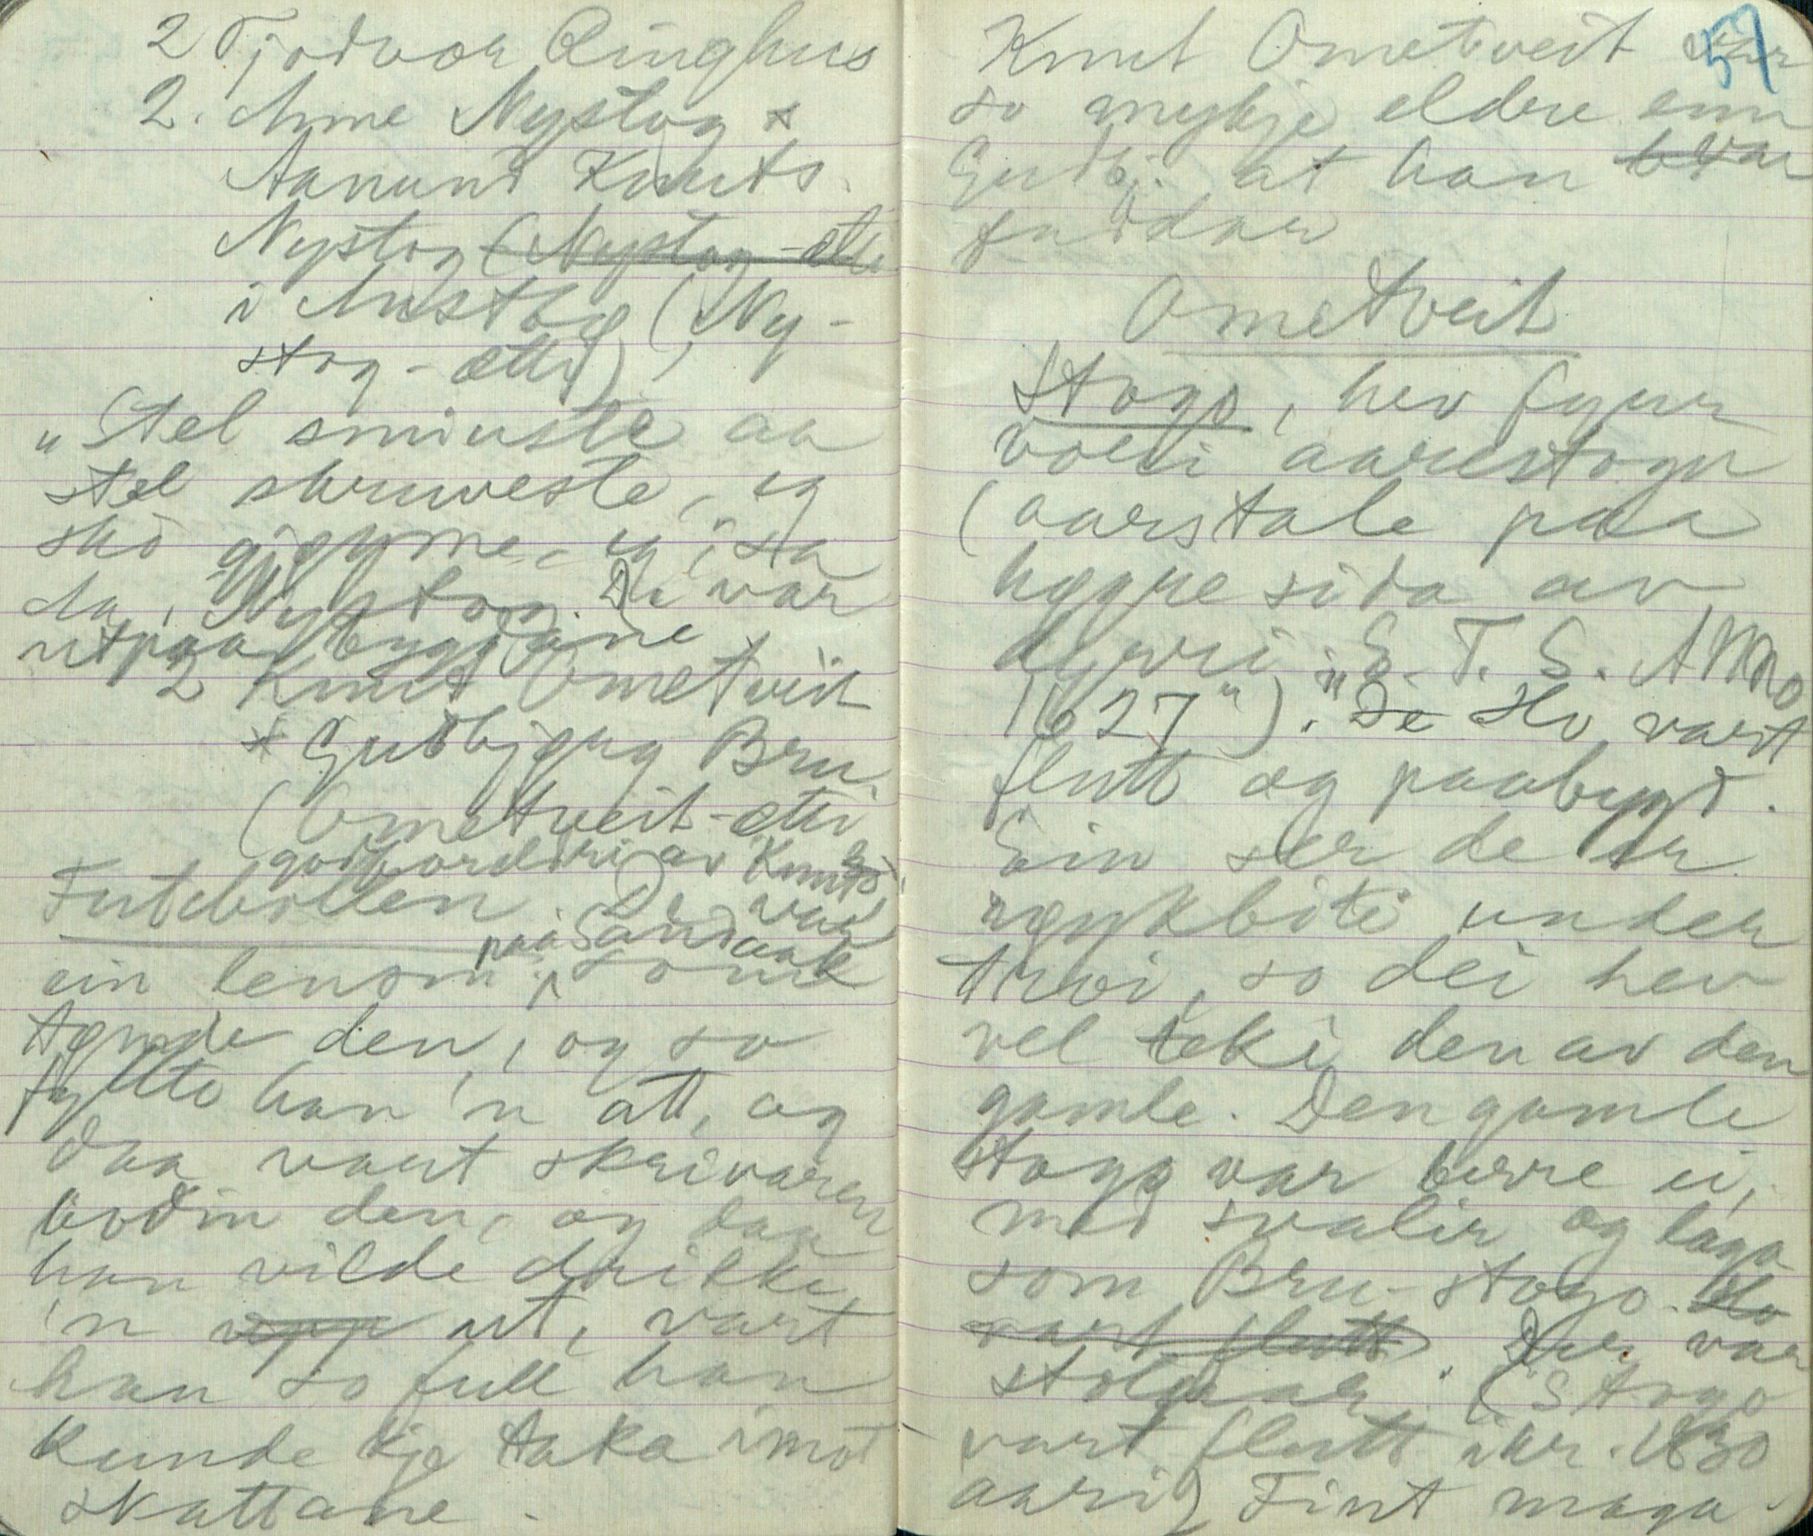 2 Tjodvor Ringhus
2. Anne Nystog x
Aanund Knuts.
Nystog (Nystog-ætti
i Austbø (Ny-
stog-ætti)
"Stel sminste aa
stel skruveste, eg
sko gjeyme, eg", sa
ho, Nystog. De var
utpaa bygdane
2 Knut Ometveit
x Gudbjørg Bru
(Ometveit-ætti
av Knut
Futebollen. De var
ein lensm. paa Sandaak som
tømde den, og so
fyllte han 'n att, og
daa vart skrivaren
bodin den, og daa
han vilde drikke
'n upp ut, vart
han so full han
kunde kje taka imot
skattane.
57
Knut Ometveit var
so mykje eldre enn
Gudbj. at han var
fadder
Ometveit
Stogo, hev fyrr
vori aarestogu
(aarstale paa
høgre sida av
dyrri: "E. T. S. Anno
1627"). De Ho vart
flutt og paabygd.
Ein ser de er
røykbite under
troi, so dei hev
vel teki den av den
gamle. Den gamle
stogo var berre ei,
med svalir og laga
som Bru-stogo. Ho
vart flutt. Der var
stolpar. (Stogo
vart flutt ikr. 1830
aari) Fint maga-